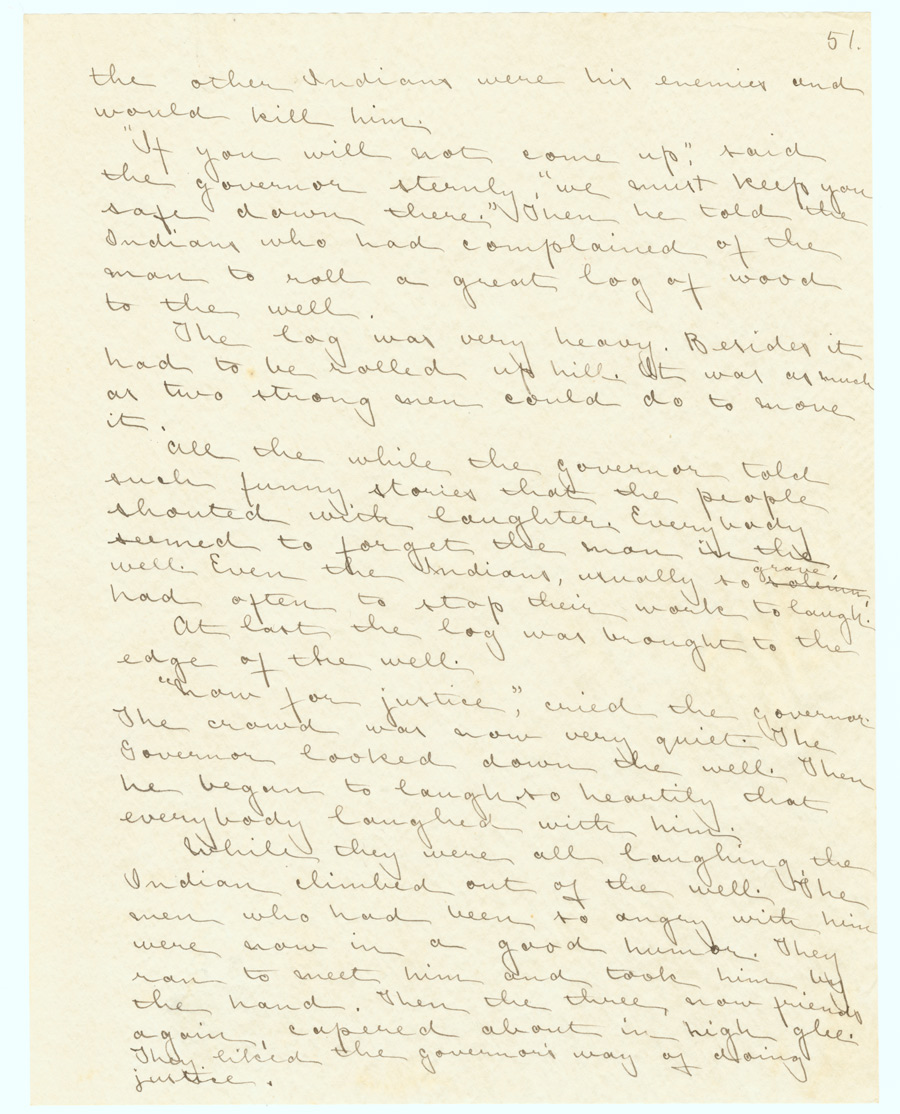 51.
the other Indians were his enemies and
would kill him.
"If you will not come up", said
the governor sternly, "we must keep you
safe down there." Then he told the
Indians who had complained of the
man to roll a great log of wood
to the well.
The log was very heavy. Besides it
had to be rolled up hill. It was as much
as two strong men could do to move
it.
All the while the governor told
such funny stories that the people
shouted with laughter. Everybody
seemed to forget the man in the
well. Even the Indians, usually so solemn,
grave,
had often to stop their work to laugh.
At last the log was brought to the
edge of the well.
"Now for justice", cried the governor.
The crowd was now very quiet. The
Governor looked down the well. Then
he began to laugh so heartily that
everybody laughed with him.
While they were all laughing the
Indian climbed out of the well. The
men who had been so angry with him
were now in a good humor. They
ran to meet him and took him by
the hand. Then the three, now friends
again, capered about in high glee.
They liked the governor's way of doing
justice.